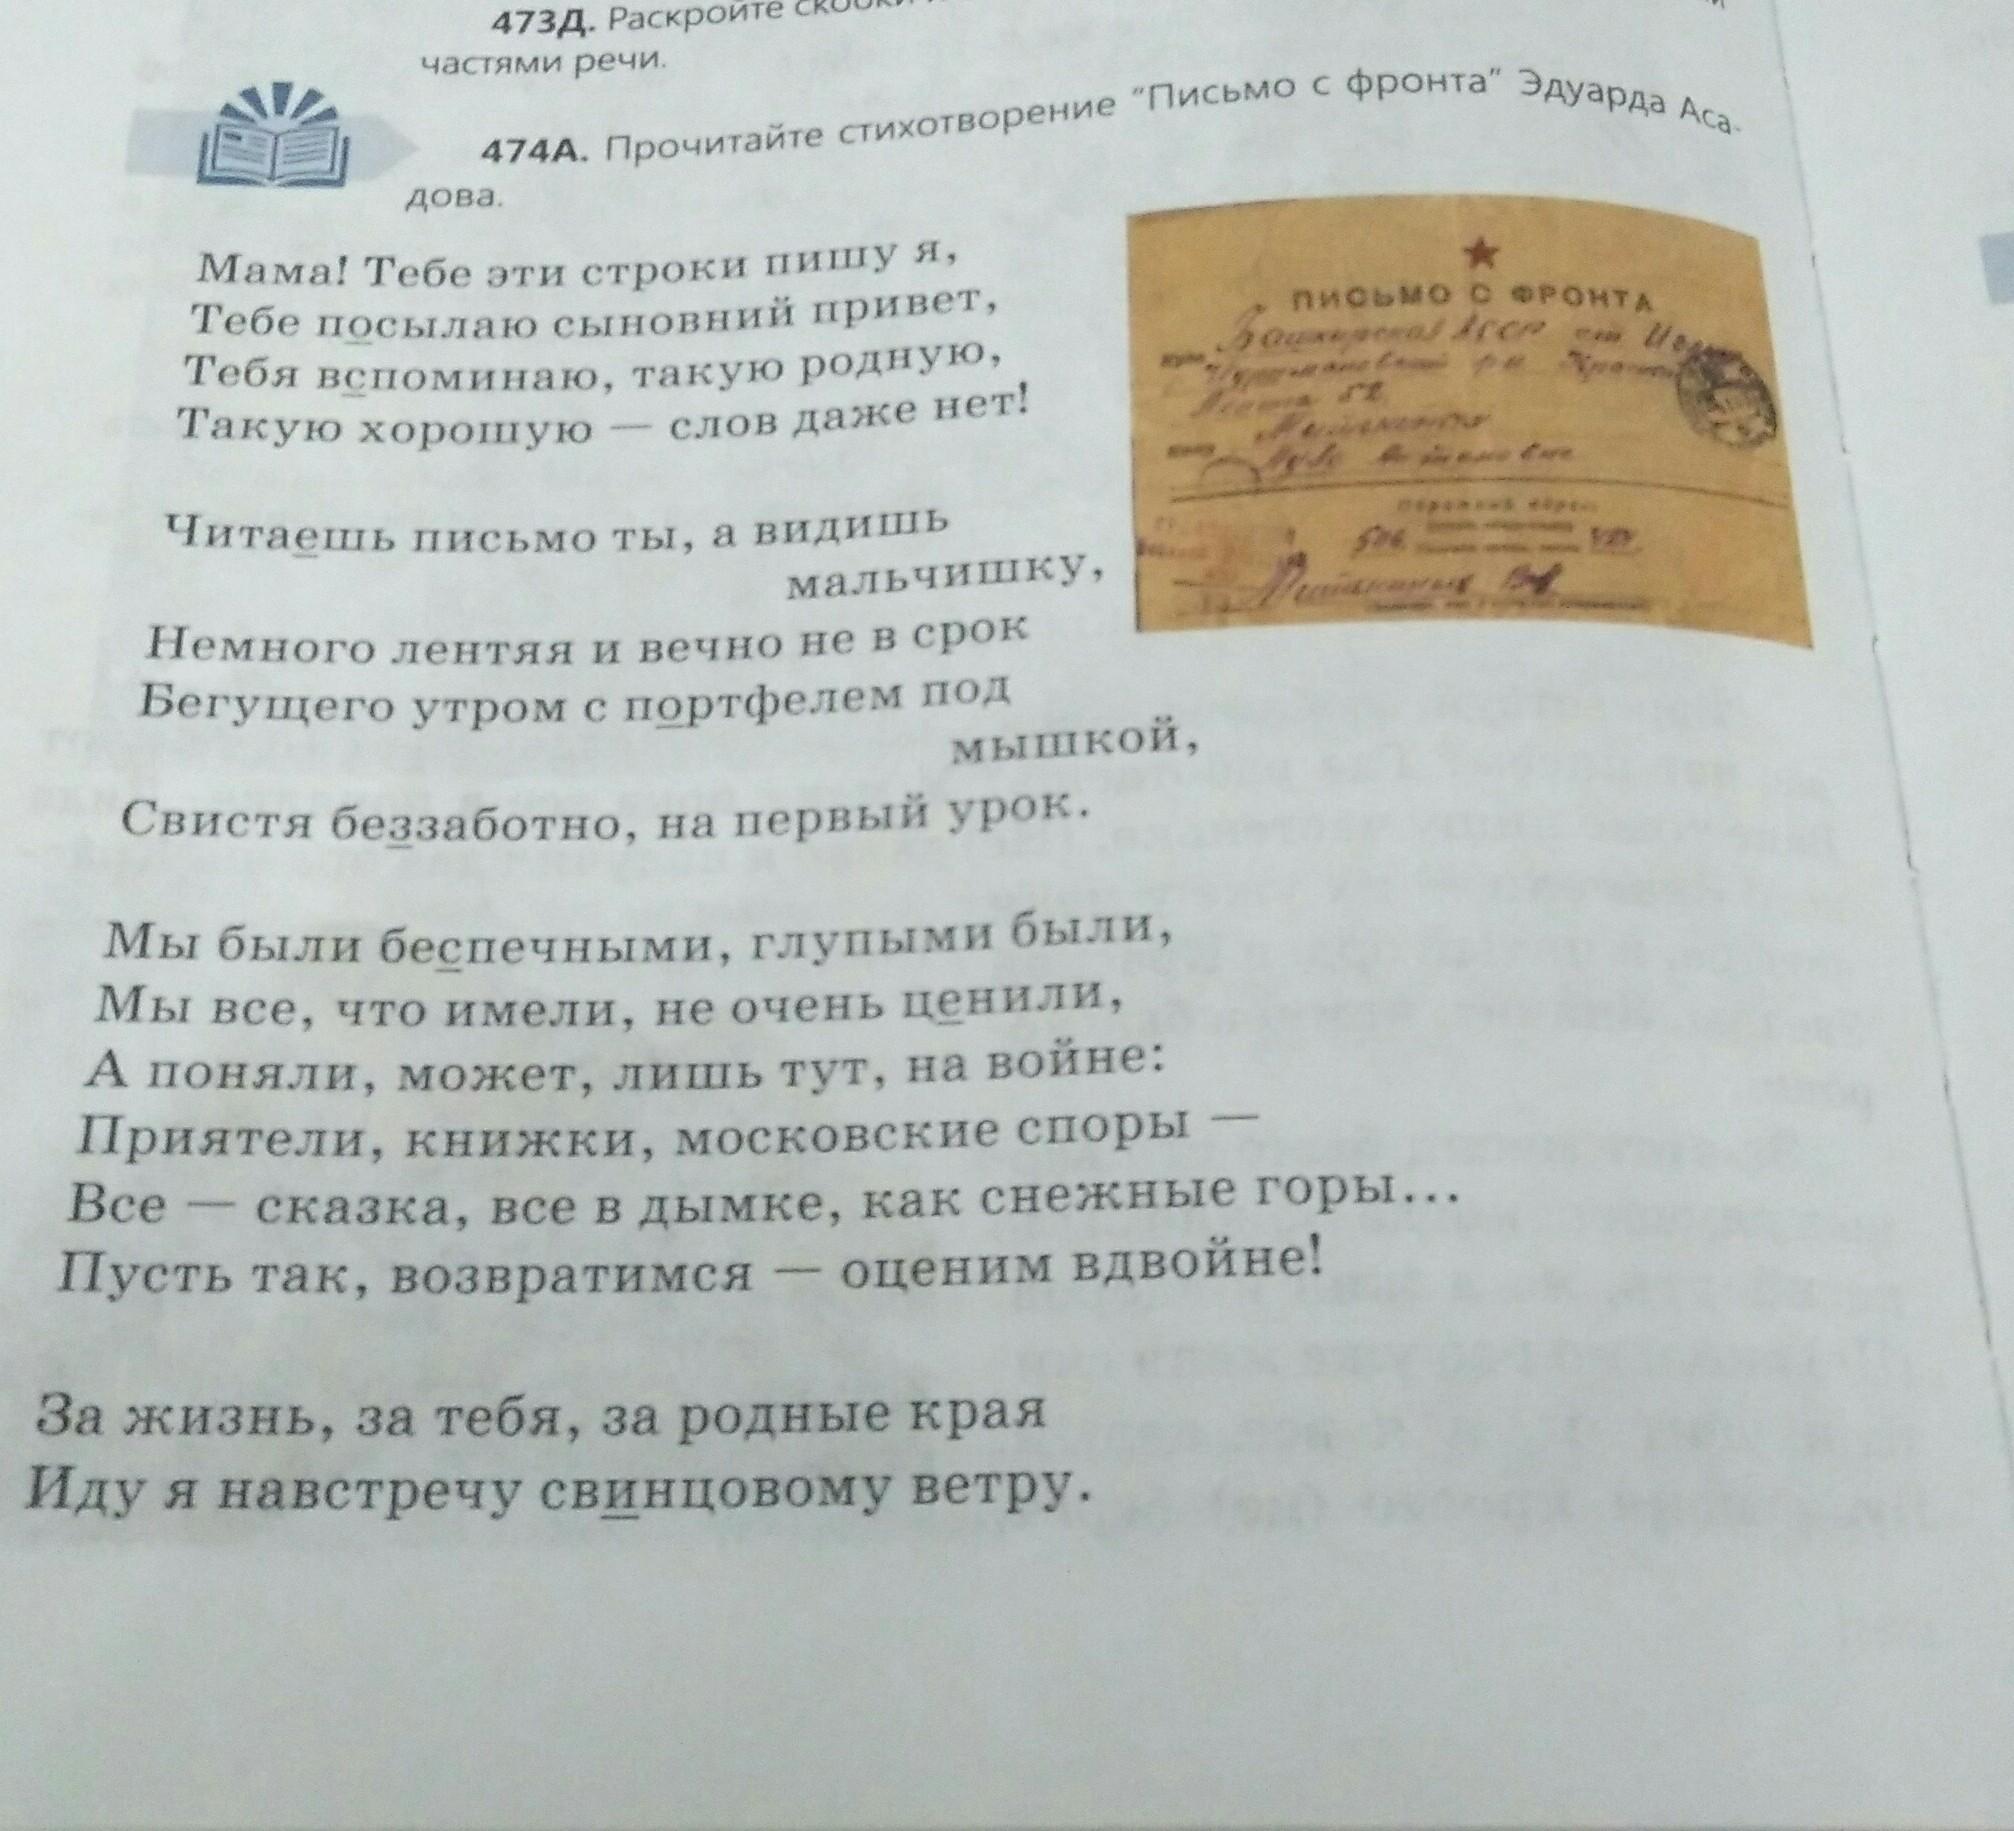 473Д. Раскройте
частями речи.
474А. Прочитайте стихотворение "Письмо с фронта" Эдуарда Аса-
дова.
Мама! Тебе эти строки пишу я,
Тебе посылаю сыновний привет,
Тебя вспоминаю, такую родную,
Такую хорошую — слов даже нет!
Читаешь письмо ты, а видишь
мальчишку,
Немного лентяя и вечно не в срок
Бегущего утром с портфелем под
мышкой,
Свистя беззаботно, на первый урок.
Мы были беспечными, глупыми были,
Мы все, что имели, не очень ценили,
А поняли, может, лишь тут, на войне:
Приятели, книжки, московские споры —
Все — сказка, все в дымке, как снежные горы...
Пусть так, возвратимся — оценим вдвойне!
За жизнь, за тебя, за родные края
Иду я навстречу свинцовому ветру.
ПИСЬМО С ФРОНТА
Башкирская АССР
52